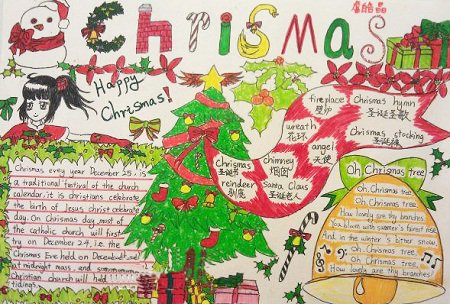 Chrismas
Happy
Chrismas!
fireplace
壁炉
Chrismas hymn
圣诞圣歌
wreath
花环
angel
天使
Chrismas stocking
圣诞袜
Chrismas
圣诞节
chimney
烟囱
reindeer
驯鹿
Santa Claus
圣诞老人
Chrismas evey year December 25 . is
a traditional festival of the church
calendar. it is christians celebrate
the birth of Jesus christ celebrate
day. On Chrismas day most of
the catholic church will first
try on December 24, i.e. the
Chrismas Eve held on December
at midnight mass , and some
christian church will held
tidings.
Oh Chrismas tree
Oh, Chrismas tree
Oh, Chrismas tree
How lovely are thy branches
bloom with summer's forest rise
And in the winter's bitter snow
Oh, Chrismas tree
Oh, Chrismas tree
How lovely are thy branches